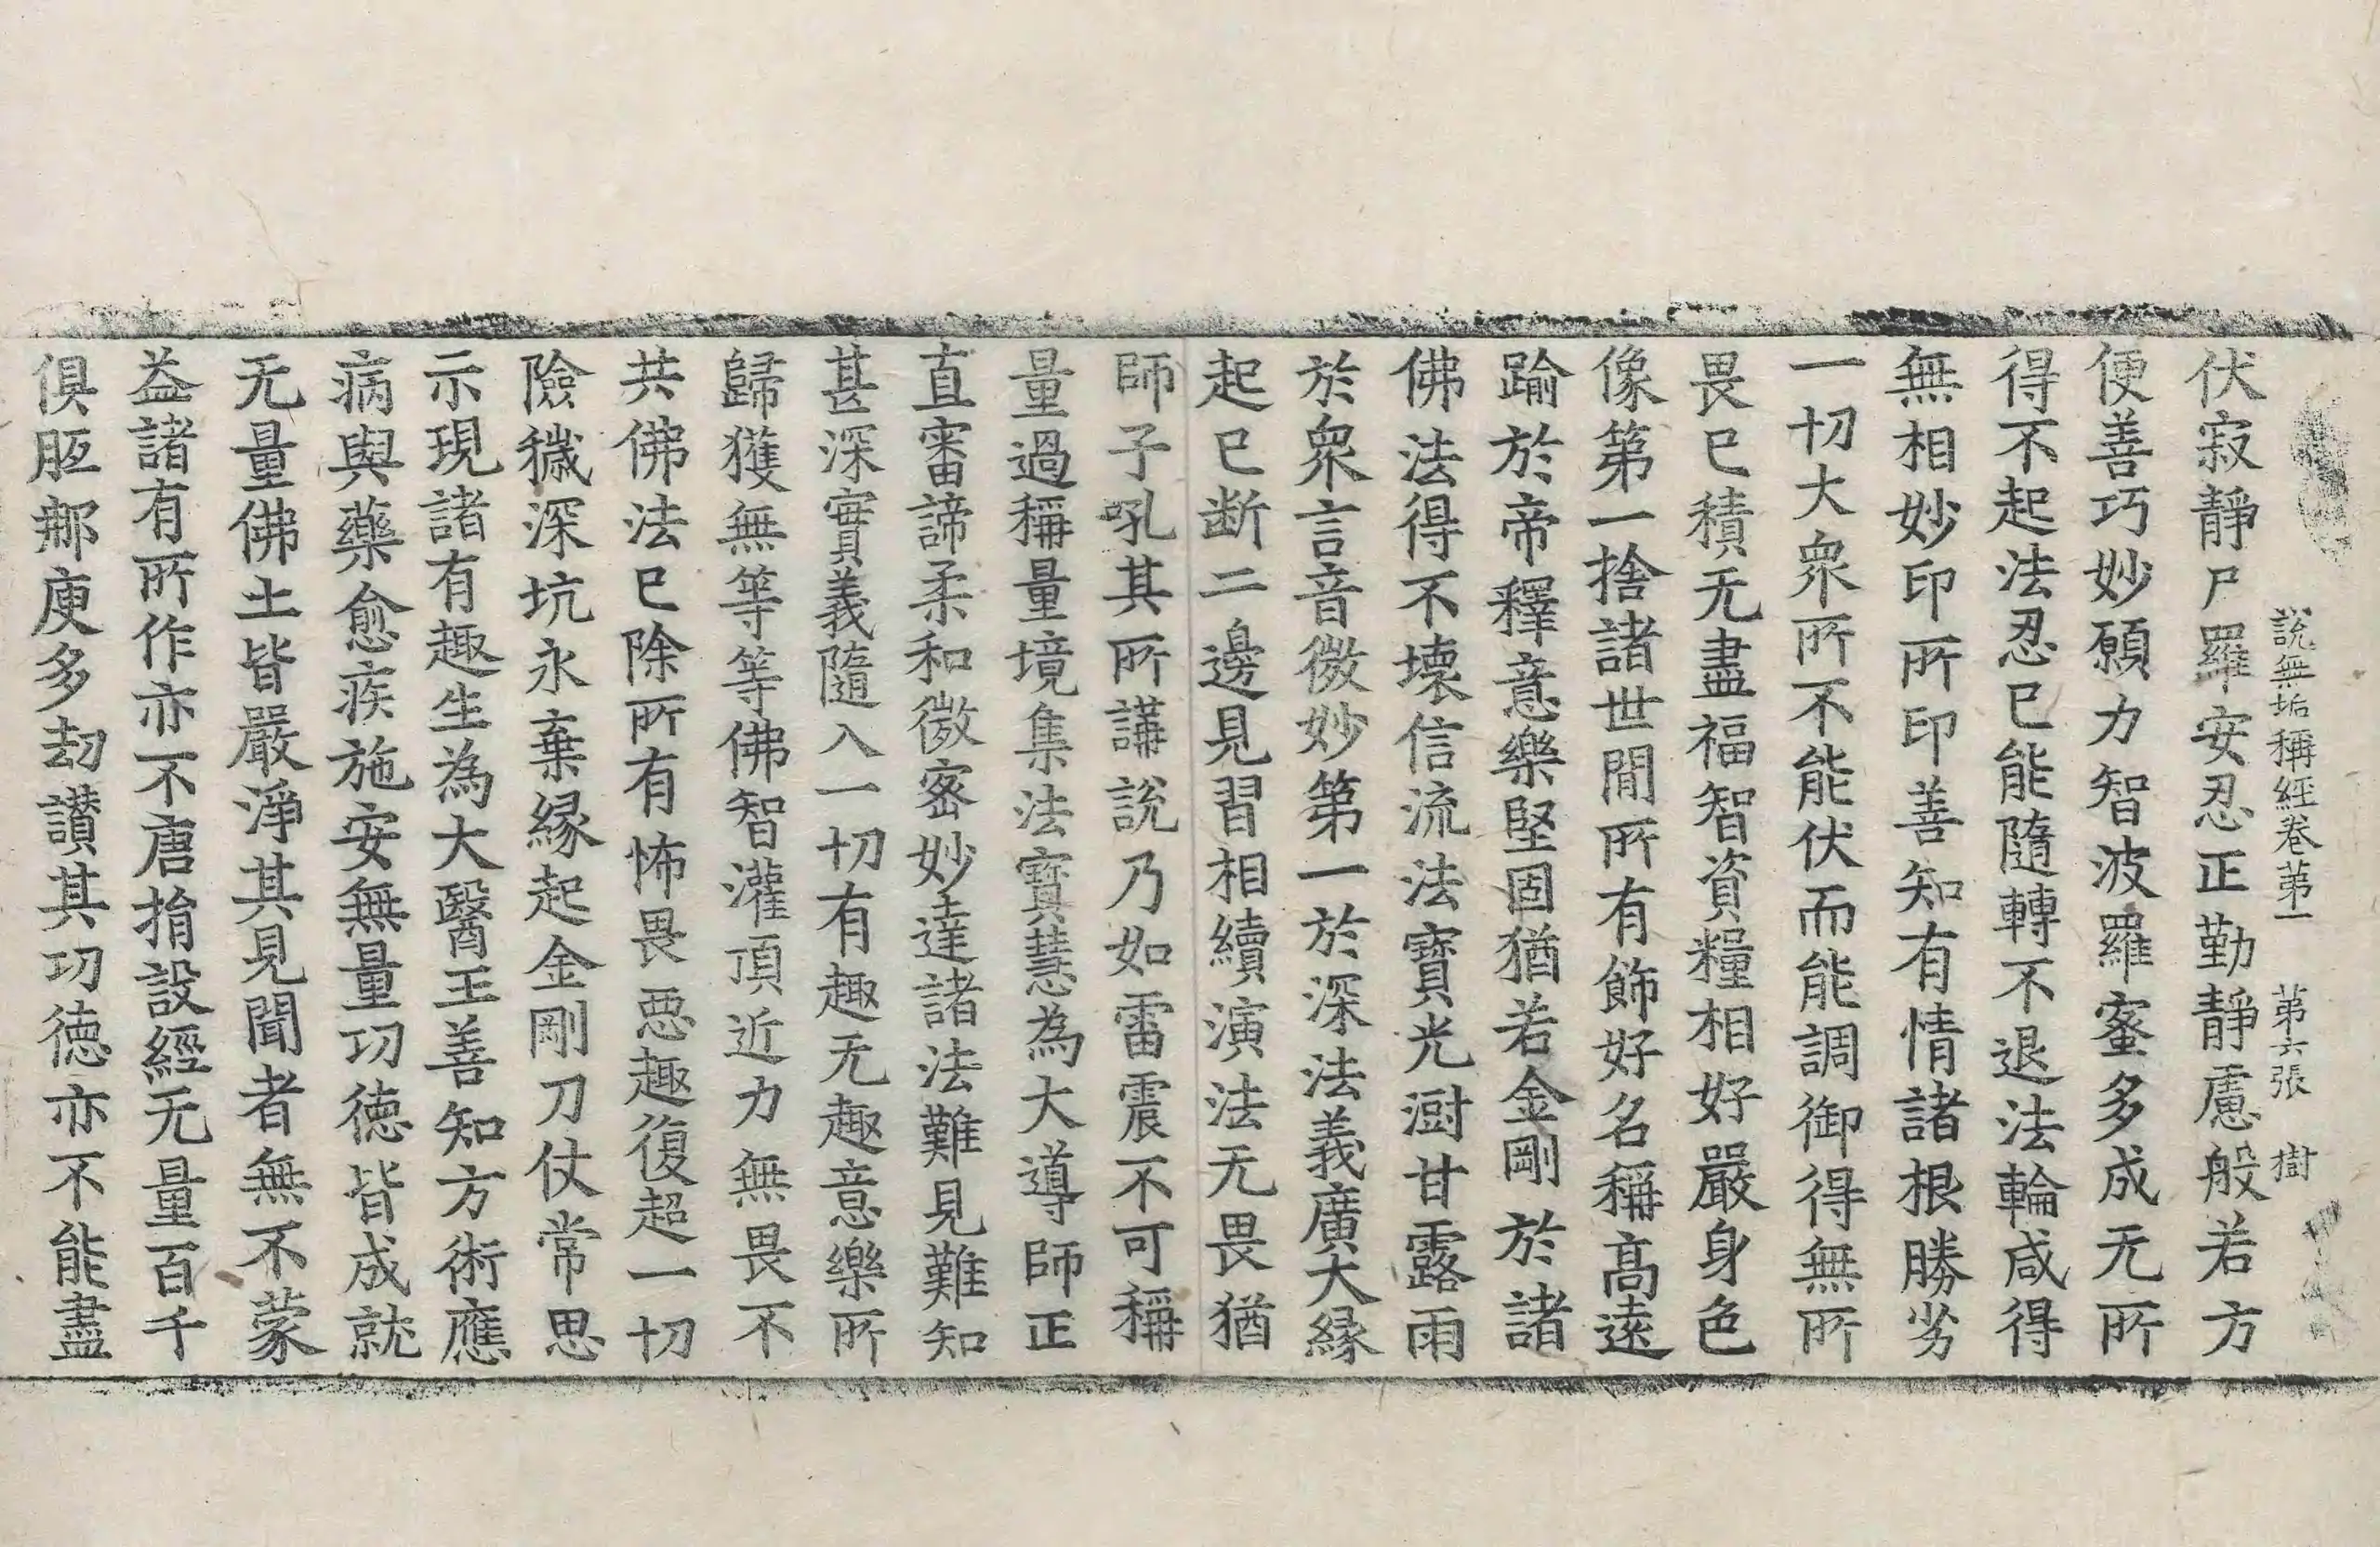 說無垢稱經卷苐一　苐六張　樹
伏寂靜尸羅安忍正勤靜慮般若方
便善巧妙願力智波羅蜜多成无所
得不起法忍已能隨轉不退法輪咸得
無相妙印所印善知有情諸根勝劣
一切大衆所不能伏而能調御得無所
畏已積无盡福智資糧相好嚴身色
像第一捨諸世間所有飾好名稱高遠
踰於帝釋意樂堅固猶若金剛於諸
佛法得不壞信流法寶光澍甘露雨
於衆言音微妙第一於深法義廣大縁
起已断二邊見習相續演法无畏猶
師子吼其所講說乃如雷震不可稱
量過稱量境集法寶慧為大導師正
直審諦柔和微密妙達諸法難見難知
甚深實義隨入一切有趣无趣意樂所
歸獲無等等佛智灌頂近力無畏不
共佛法已除所有怖畏惡趣復超一切
險穢深坑永棄縁起金剛刀仗常思
示現諸有趣生為大醫王善知方術應
病與藥愈疾施安無量功徳皆成就
无量佛土皆嚴淨其見聞者無不蒙
益諸有所作亦不唐捐設經无量百千
俱胝那庾多劫讃其功徳亦不能盡